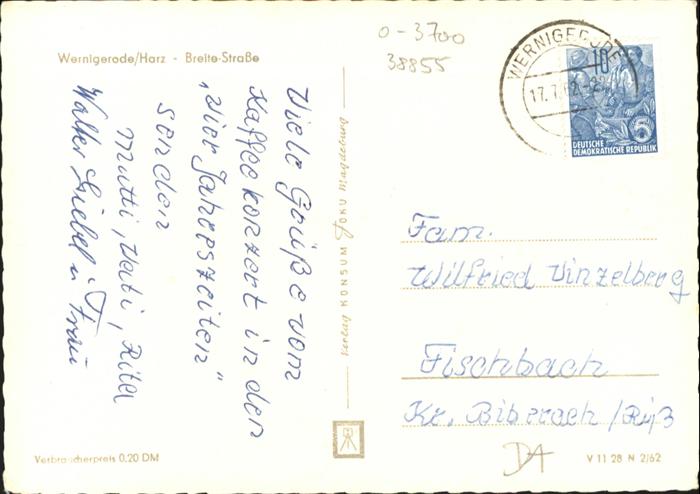 Wernigerode/Harz - Breite-Straße
o-3700
38855
Viele Grüße vom
Kaffeekonzert in den
„Vier Jahreszeiten"
senden
Mutti, Vati, Rita
Walter u. Frau
Verbraucherpreis 0,20 DM
Verlag KONSUM FOKU Magdeburg
WERNIGERODE
17.7.62
10
5
DEUTSCHE
DEMOKRATISCHE REPUBLIK
Fam.
Wilfried Vinzelberg
Fischbach
Kr. Biberach/Riß
DA
V 11 28 N 2/62